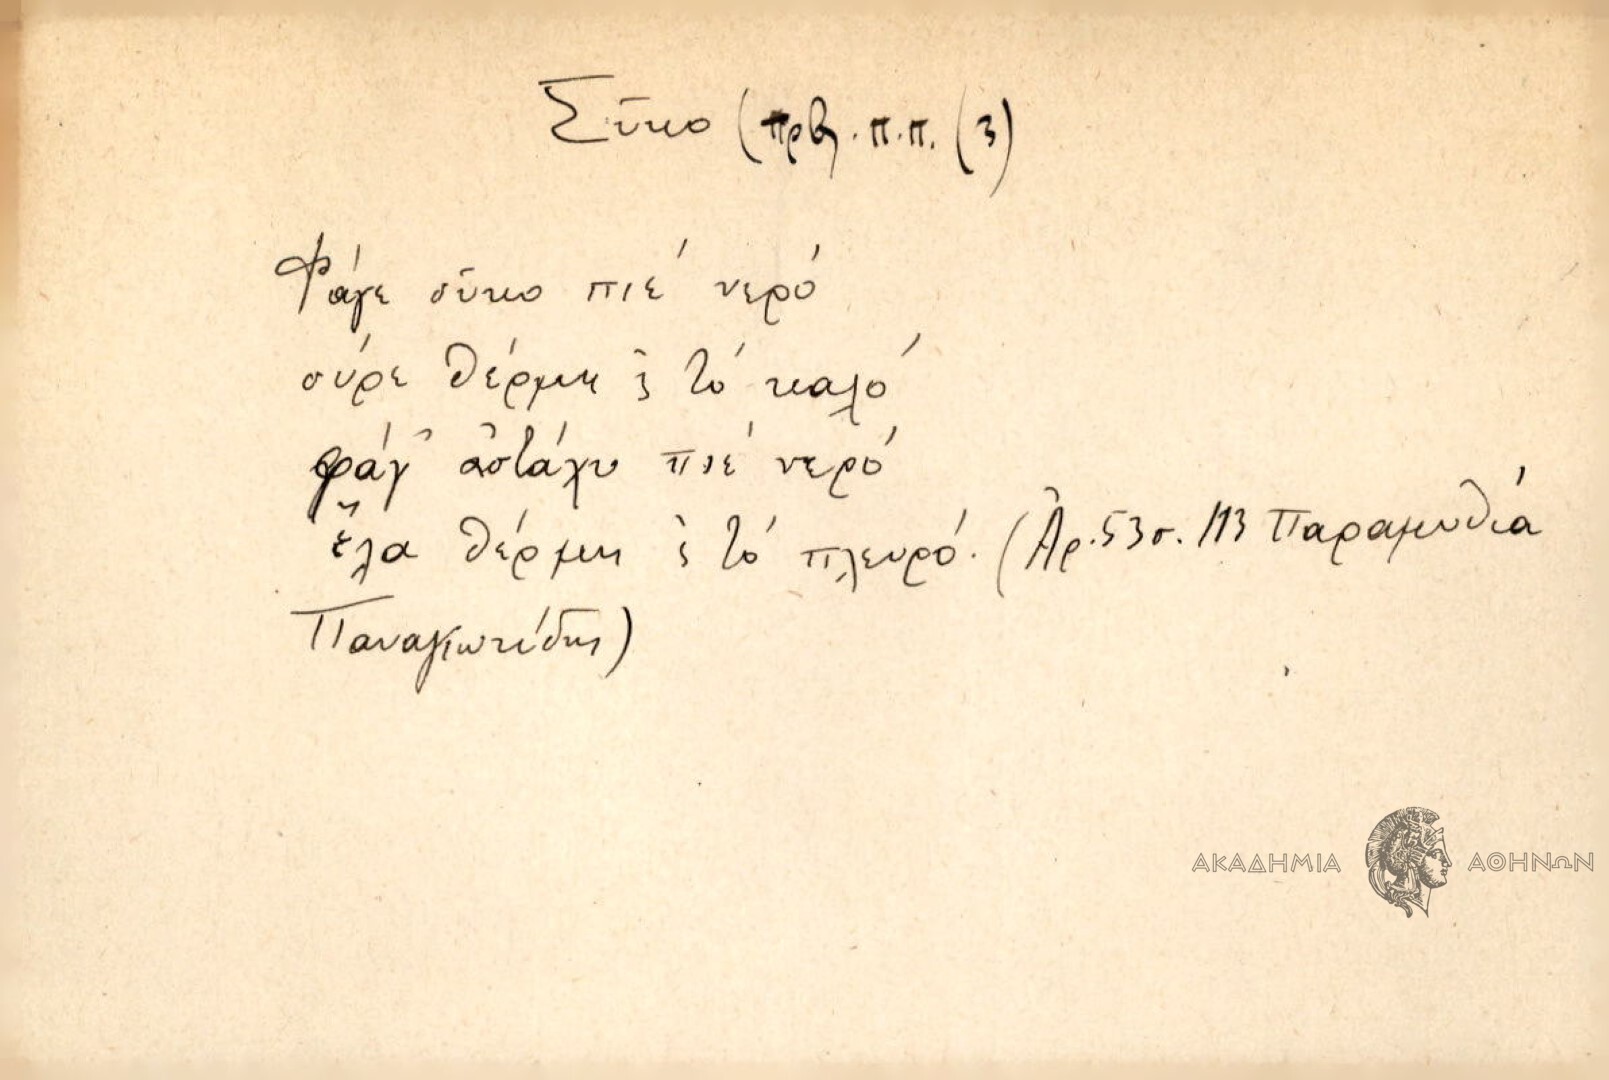 Σῦκο (πρβ. π.π. (3)
Φάγε σῦκο πιέ νερό
σύρε θέρμη ς τό καλό
φάγ' ἀστάχυ πιέ νερό
ἔλα θέρμη ς τό πλευρό. (Ἀρ. 53 σ. 113 Παραμυθιά
Παναγιωτίδης)
ΑΚΑΔΗΜΙΑ ΑΘΗΝΩΝ